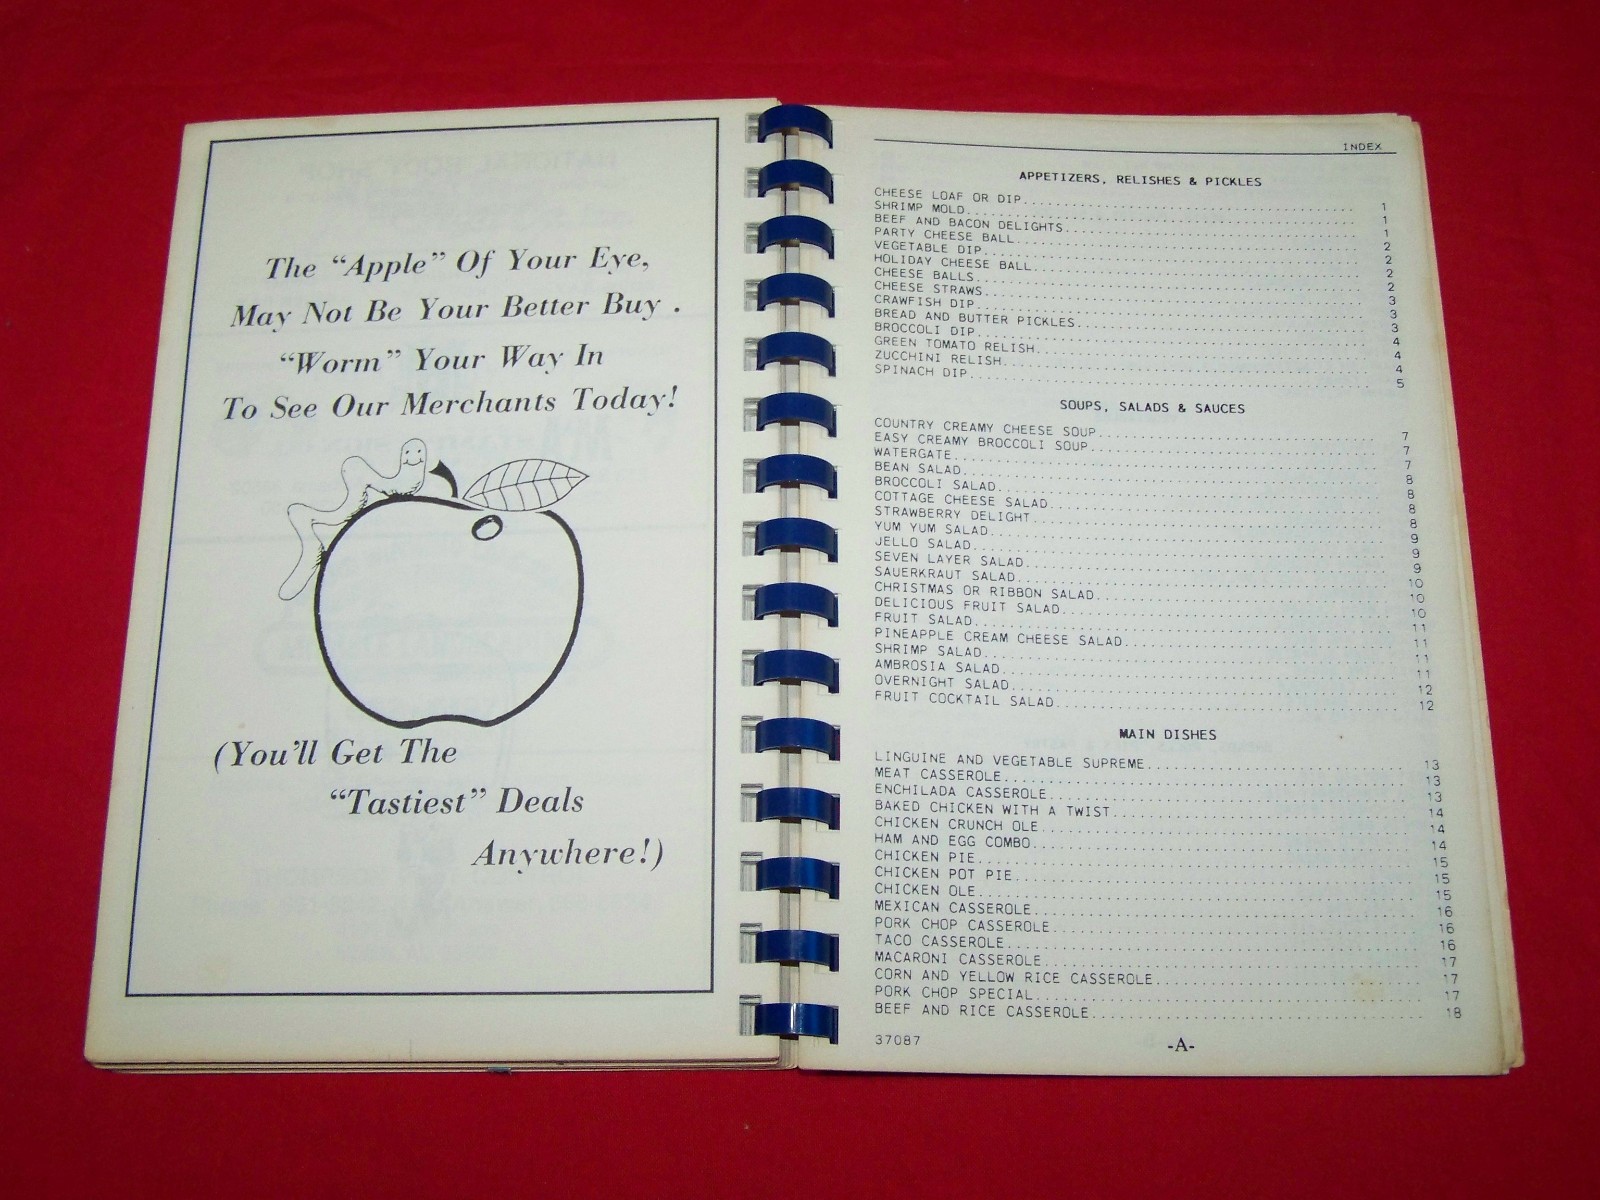 The “Apple” Of Your Eye,
May Not Be Your Better Buy .
“Worm” Your Way In
To See Our Merchants Today!
(You'll Get The
“Tastiest” Deals
Anywhere!)
INDEX
APPETIZERS, RELISHES & PICKLES
CHEESE LOAF OR DIP 1
SHRIMP MOLD 1
BEEF AND BACON DELIGHTS 1
PARTY CHEESE BALL 2
VEGETABLE DIP 2
HOLIDAY CHEESE BALL 2
CHEESE BALLS 2
CHEESE STRAWS 3
CRAWFISH DIP 3
BREAD AND BUTTER PICKLES 3
BROCCOLI DIP 4
GREEN TOMATO RELISH 4
ZUCCHINI RELISH 4
SPINACH DIP 5
SOUPS, SALADS & SAUCES
COUNTRY CREAMY CHEESE SOUP 7
EASY CREAMY BROCCOLI SOUP 7
WATERGATE 7
BEAN SALAD 8
BROCCOLI SALAD 8
COTTAGE CHEESE SALAD 8
STRAWBERRY DELIGHT 8
YUM YUM SALAD 9
JELLO SALAD 9
SEVEN LAYER SALAD 9
SAUERKRAUT SALAD 10
CHRISTMAS OR RIBBON SALAD 10
DELICIOUS FRUIT SALAD 10
FRUIT SALAD 11
PINEAPPLE CREAM CHEESE SALAD 11
SHRIMP SALAD 11
AMBROSIA SALAD 11
OVERNIGHT SALAD 12
FRUIT COCKTAIL SALAD 12
MAIN DISHES
LINGUINE AND VEGETABLE SUPREME 13
MEAT CASSEROLE 13
ENCHILADA CASSEROLE 13
BAKED CHICKEN WITH A TWIST 14
CHICKEN CRUNCH OLE 14
HAM AND EGG COMBO 14
CHICKEN PIE 15
CHICKEN POT PIE 15
CHICKEN OLE 15
MEXICAN CASSEROLE 16
PORK CHOP CASSEROLE 16
TACO CASSEROLE 16
MACARONI CASSEROLE 17
CORN AND YELLOW RICE CASSEROLE 17
PORK CHOP SPECIAL 17
BEEF AND RICE CASSEROLE 18
37087
-A-